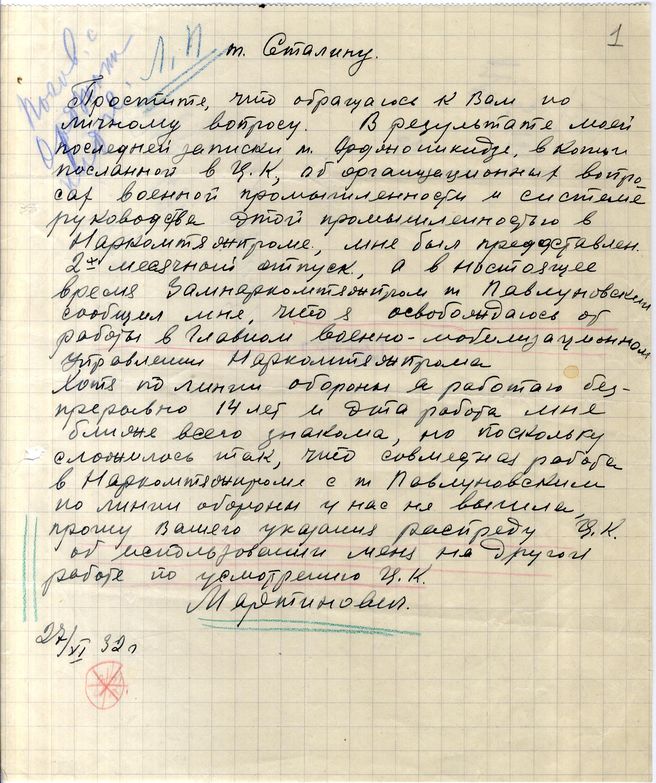 1
Л.П
т. Сталину.
Простите, что обращаюсь к Вам по
личному вопросу. В результате моей
последней записки т. Орджоникидзе, в копии
посланной в Ц.К, об организационных вопро-
сах военной промышленности и системе
руководства этой промышленностью в
Наркомтяжпроме, мне был предоставлен
2х месячный отпуск, а в настоящее
время Замнаркомтяжпром т Павлуновский
сообщил мне, что я освобождаюсь от
работы в Главном военно-мобилизационном
управлении Наркомтяжпрома
Хотя по линии обороны я работаю без-
прерывно 14 лет и эта работа мне
ближе всего знакома, но поскольку
сложилось так, что совместная работа
в Наркомтяжпроме с т Павлуновским
по линии обороны у нас не вышла,
прошу Вашего указания распреду Ц.К.
об использовании меня на другой
работе по усмотрению Ц.К.
Мартинович.
27/XI 32 г